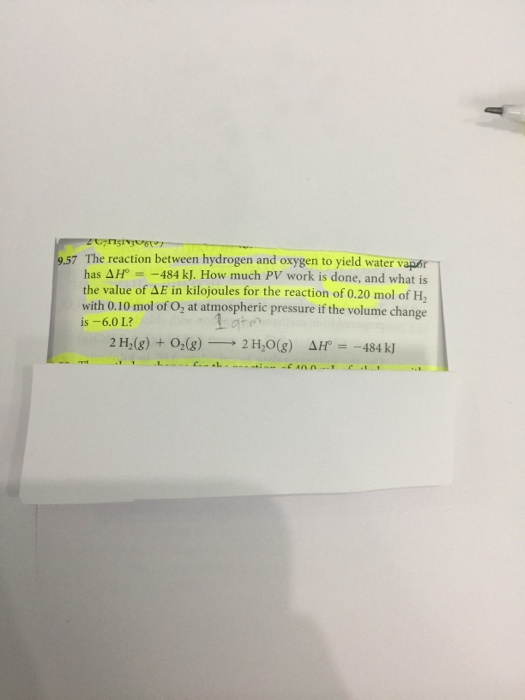 9.57 The reaction between hydrogen and oxygen to yield water vapor
has ΔH° = −484 kJ. How much PV work is done, and what is
the value of ΔE in kilojoules for the reaction of 0.20 mol of H₂
with 0.10 mol of O₂ at atmospheric pressure if the volume change
is −6.0 L?
1 atm
2 H₂(g) + O₂(g) ⟶ 2 H₂O(g) ΔH° = −484 kJ